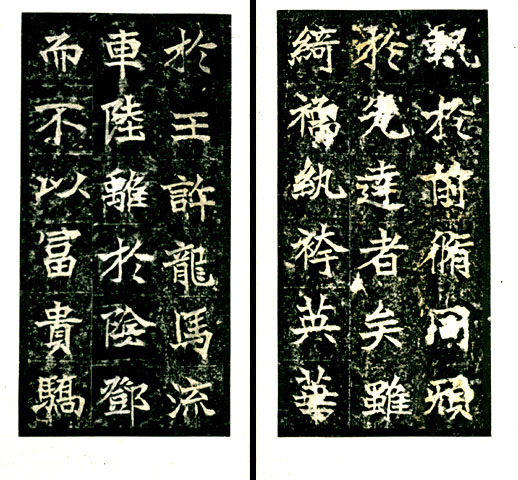 軌於前脩同頏
於先達者矣雖
綺襦紈袴英華
於王許龍馬流
車陸離於陰鄧
而不以富貴驕